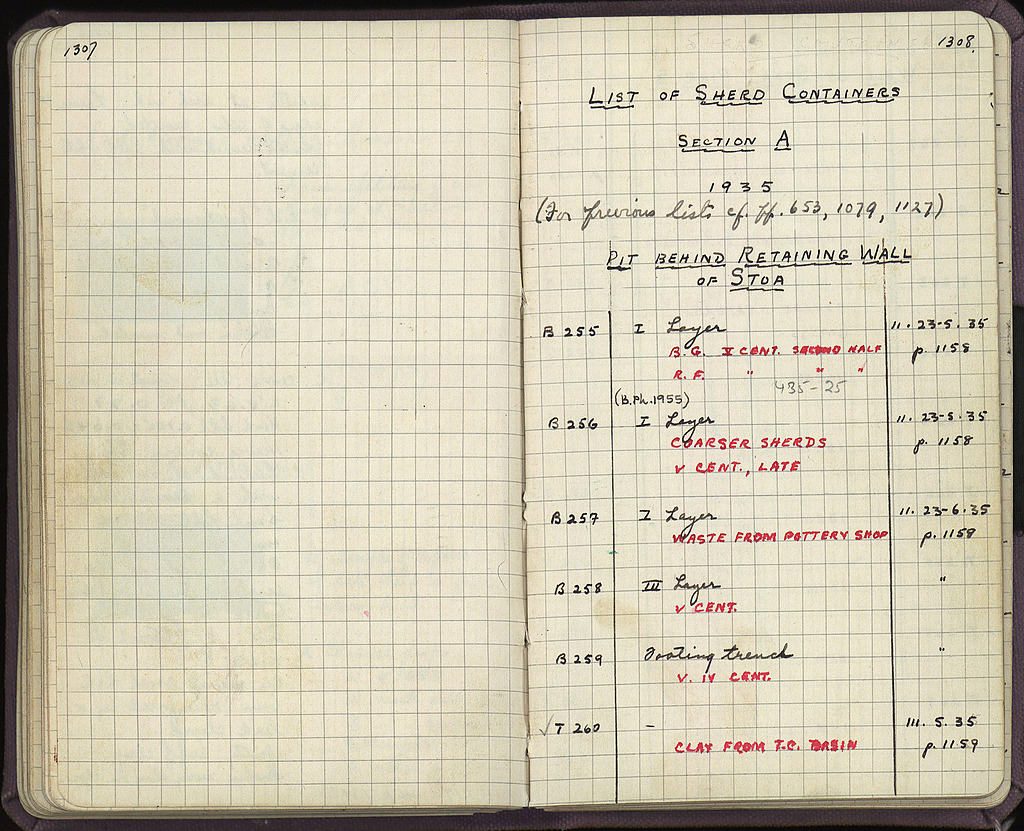 1307
1308.
LIST OF SHERD CONTAINERS
SECTION A
1935
(For previous lists cf. pp. 653, 1079, 1127)
PIT BEHIND RETAINING WALL
OF STOA
B 255 I Layer 11. 23-5. 35
B.G. V CENT. SECOND HALF p. 1158
R.F. " " "
435-25
(B.Ph. 1955)
B 256 I Layer 11. 23-5. 35
COARSER SHERDS p. 1158
V CENT., LATE
B 257 I Layer 11. 23-6. 35
WASTE FROM POTTERY SHOP p. 1159
B 258 III Layer "
V CENT.
B 259 Footing trench "
V. IV CENT.
√T 260 – III. 5. 35
CLAY FROM T.C. BASIN p. 1159